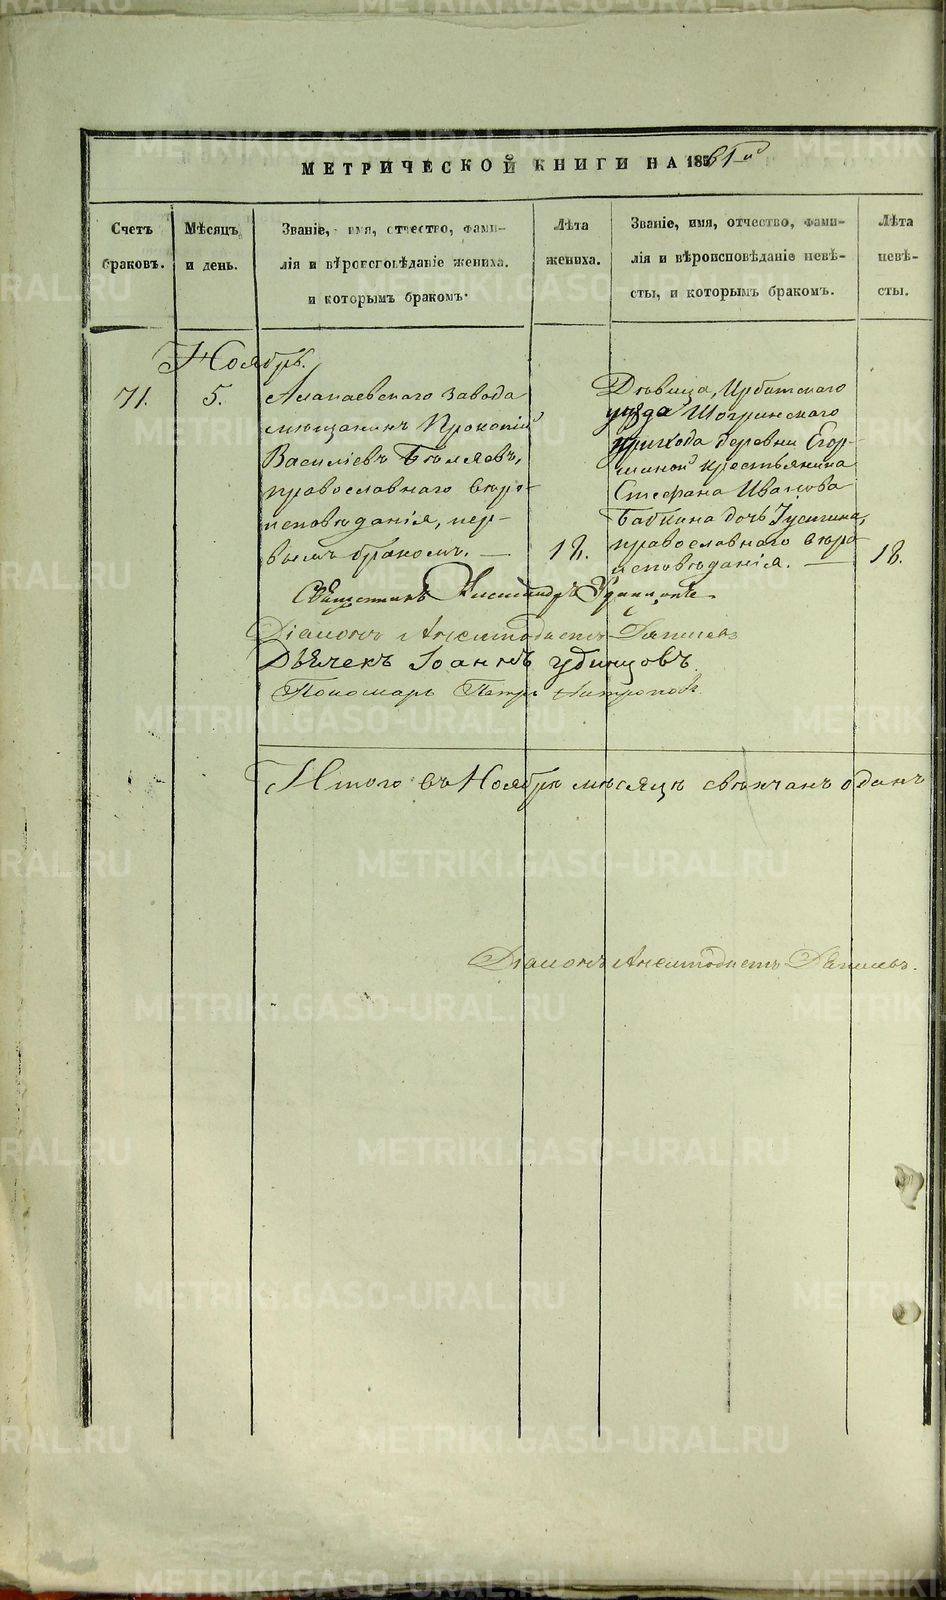 МЕТРИЧЕСКОЙ КНИГИ НА 1861й
Счетъ браковъ.
Мѣсяцъ и день.
Званіе, имя, отчество, фами-
лія и вѣроисповѣданіе жениха.
и которымъ бракомъ.
Лѣта жениха.
Званіе, имя, отчество, фами-
лія и вѣроисповѣданіе невѣ-
сты, и которымъ бракомъ.
Лѣта невѣ-
сты.
Ноябрь.
71.
5.
Алапаевскаго завода
мѣщанинъ Прокопій
Василіевъ Бѣляевъ,
православнаго вѣро-
исповѣданія, пер-
вымъ бракомъ. —
18.
Дѣвица, Ирбитскаго
уѣзда Шогринскаго
прихода деревни Егор-
шиной крестьянина
Стефана Иванова
Бабкина дочь Іустина,
православнаго вѣро-
исповѣданія. —
18.
Священникъ Александръ Удинцовъ
Діаконъ Анемподистъ
Дьячекъ Іоаннъ Удинцовъ
Пономарь Петръ
Итого въ Ноябрѣ мѣсяцѣ свѣнчанъ одинъ
Діаконъ Анемподистъ
METRIKI.GASO-URAL.RU